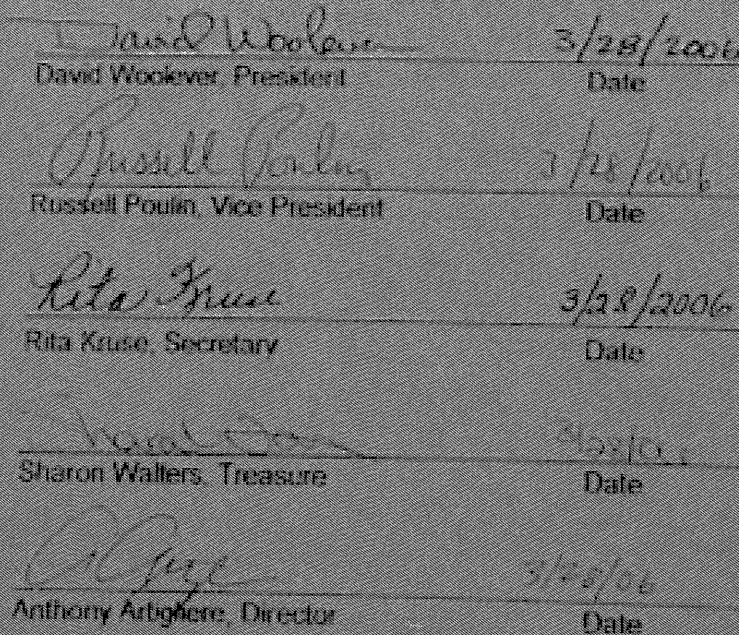 David Woolever 3/28/2006
David Woolever, President Date
Russell Poulin 3/28/2006
Russell Poulin, Vice President Date
Rita Kruse 3/28/2006
Rita Kruse, Secretary Date
Sharon
Sharon Walters, Treasure Date
3/28/06
Anthony Artighere, Director Date